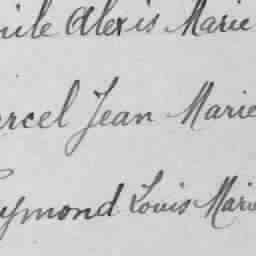 mile Alexis Marie
arcel Jean Marie
aymond Louis Marie